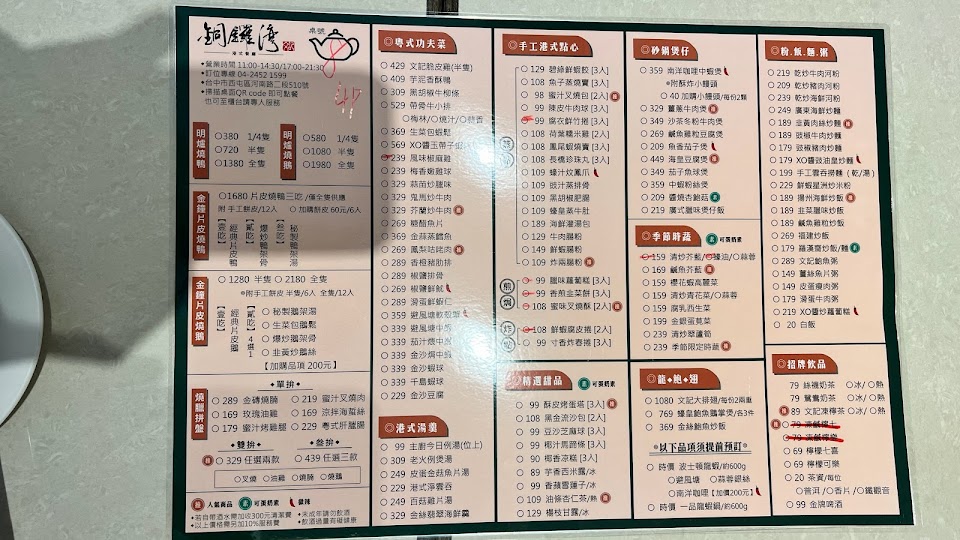 銅鑼灣
港式餐廳
桌號
8
●營業時間 11:00-14:30/17:00-21:30
●訂位專線 04-2452 1599
●台中市西屯區河南路二段510號
●掃描桌面QR code 即可點餐
也可至櫃台請專人服務
明爐燒鴨
○380 1/4隻
○720 半隻
○1380 全隻
明爐燒鵝
○580 1/4隻
○1080 半隻
○1980 全隻
金鐘片皮燒鴨
○1680 片皮燒鴨三吃 /僅全隻供應
附 手工餅皮/12人 ○ 加購餅皮 60元/6人
【壹吃】 經典片皮鴨
【貳吃】 爆炒鴨架骨
【叁吃】 秘製鴨架湯
金鐘片皮燒鵝
○1280 半隻 ○2180 全隻
*附手工餅皮 半隻/6人 全隻/12人
【壹吃】 經典片皮鵝
【貳吃】 4選1
○ 秘製鵝架湯
○ 生菜包鵝鬆
○ 爆炒鵝架骨
○ 韭黃炒鵝絲
【加購品項 200元】
燒臘拼盤
●單拚●
○ 289 金磚燒腩
○ 169 玫瑰油雞
○ 179 蜜汁烤雞腿
○ 219 蜜汁叉燒肉
○ 169 涼拌海蜇絲
○ 229 粵式肝臘腸
●雙拚●
○ 329 任選兩款
●叁拚●
○ 439 任選三款
○叉燒 ○油雞 ○燒腩 ○燒鵝
人氣商品 素 可蛋奶素 微辣
●若自帶酒水需加收300元清潔費
●以上價格需另加10%服務費
●未成年請勿飲酒
●飲酒過量有礙健康
◎粵式功夫菜
○ 429 文記脆皮雞(半隻)
○ 409 芋泥香酥鴨
○ 309 黑胡椒牛柳條
○ 529 帶骨牛小排
○梅林/○燒汁/○蒜香
○ 369 生菜包蝦鬆
○ 569 XO醬玉帶子蝦仁
○ 239 風味椒麻雞
○ 239 梅香嫩雞球
○ 329 蒜苗炒臘味
○ 329 鬼馬炒牛肉
○ 329 芥蘭炒牛肉
○ 269 糖醋魚片
○ 369 金蒜蒸鱈魚
○ 269 鳳梨咕咾肉
○ 289 香橙豬肋排
○ 269 椒鹽排骨
○ 269 椒鹽鮮魷
○ 289 滑蛋鮮蝦仁
○ 359 避風塘軟殼蟹
○ 339 避風塘中蝦
○ 339 茄汁煨中蝦
○ 339 金沙焗中蝦
○ 339 金沙蝦球
○ 339 千島蝦球
○ 229 金沙豆腐
◎港式湯羹
○ 99 主廚今日例湯(位上)
○ 309 老火例煲湯
○ 249 皮蛋金菇魚片湯
○ 219 港式淨雲吞
○ 249 百菇雞片湯
○ 329 金絲翡翠海鮮羹
◎手工港式點心
蒸籠
○ 129 碧綠鮮蝦餃 [3入]
○ 108 魚子蒸燒賣 [3入]
○ 98 蜜汁叉燒包 [2入]
○ 99 陳皮牛肉球 [3入]
○ 99 腐衣鮮竹捲 [3入]
○ 108 荷葉糯米雞 [2入]
○ 108 鳳尾蝦燒賣 [3入]
○ 108 長橋珍珠丸 [3入]
○ 109 蠔汁炆鳳爪
○ 109 豉汁蒸排骨
○ 109 黑胡椒肥腸
○ 109 蠔皇蒸牛肚
○ 189 海鮮灌湯包
○ 129 牛肉腸粉
○ 149 鮮蝦腸粉
○ 109 炸兩腸粉
煎焗
○ 99 臘味蘿蔔糕 [3入]
○ 99 香煎韭菜餅 [3入]
○ 108 蜜味叉燒酥 [3入]
炸
○ 108 鮮蝦腐皮捲 [3入]
○ 99 寸香炸春捲 [3入]
◎精選甜品 素 可蛋奶素
○ 99 酥皮烤蛋塔 [3入]
○ 108 黑金流沙包 [2入]
○ 99 豆沙芝麻球 [3入]
○ 99 椰汁馬蹄糕 [3入]
○ 90 椰香涼糕 [3入]
○ 89 芋香西米露/冰
○ 99 香蘋雪蓮子/冰
○ 109 油條杏仁茶/熱
○ 129 楊枝甘露/冰
◎砂鍋煲仔
○359 南洋咖哩中蝦煲
*附酥炸小饅頭
○ 40 加購小饅頭/每份2顆
○ 329 薑蔥牛肉煲
○ 349 沙茶冬粉牛肉煲
○ 269 鹹魚雞粒豆腐煲
○ 209 魚香茄子煲
○ 449 海皇豆腐煲
○ 349 茄子魚球煲
○ 359 中蝦粉絲煲
○ 209 醬燒杏鮑菇
○ 219 廣式臘味煲仔飯
◎季節時蔬 素 可蛋奶素
○159 清炒芥藍/○蠔油/○蒜蓉
○169 鹹魚芥藍
○159 櫻花蝦高麗菜
○159 清炒青花菜/○蒜蓉
○159 腐乳西生菜
○199 金銀蛋莧菜
○159 清炒翠蘆筍
○239 季節限定時蔬
◎龍●鮑●翅
○1080 文記大排翅/每盅80g
○ 769 蠔皇鮑魚鵝掌煲/各3件
○ 369 金絲鮑魚炒飯
*以下品項須提前預訂*
○ 時價 波士頓龍蝦/約600g
○避風塘 ○蒜蓉銀絲
○南洋咖哩【加價200元】
○ 時價 一品龍蝦鍋/約600g
◎粉.飯.麵.粥
○ 219 乾炒牛肉河粉
○ 209 乾炒豬肉河粉
○ 239 乾炒海鮮河粉
○ 249 廣東海鮮炒麵
○ 189 韭黃肉絲炒麵
○ 189 豉椒牛肉炒麵
○ 179 豉椒豬肉炒麵
○ 179 XO醬豉油皇炒麵
○ 199 手工雲吞撈麵（乾/湯）
○ 229 鮮蝦星洲炒米粉
○ 189 揚州海鮮炒飯
○ 189 韭菜臘味炒飯
○ 189 鹹魚雞粒炒飯
○ 269 福建炒飯
○ 179 羅漢齋炒飯/麵
○ 289 文記鮑魚粥
○ 149 薑絲魚片粥
○ 149 皮蛋瘦肉粥
○ 179 滑蛋牛肉粥
○ 219 XO醬炒蘿蔔糕
○ 20 白飯
◎招牌飲品
79 絲襪奶茶 ○冰/○熱
79 鴛鴦奶茶 ○冰/○熱
○ 89 文記凍檸茶 ○冰/○熱
○ 69 檸檬七喜
○ 69 檸檬可樂
○ 20 茶資/每位
○普洱 /○香片 /○鐵觀音
○ 99 金牌啤酒